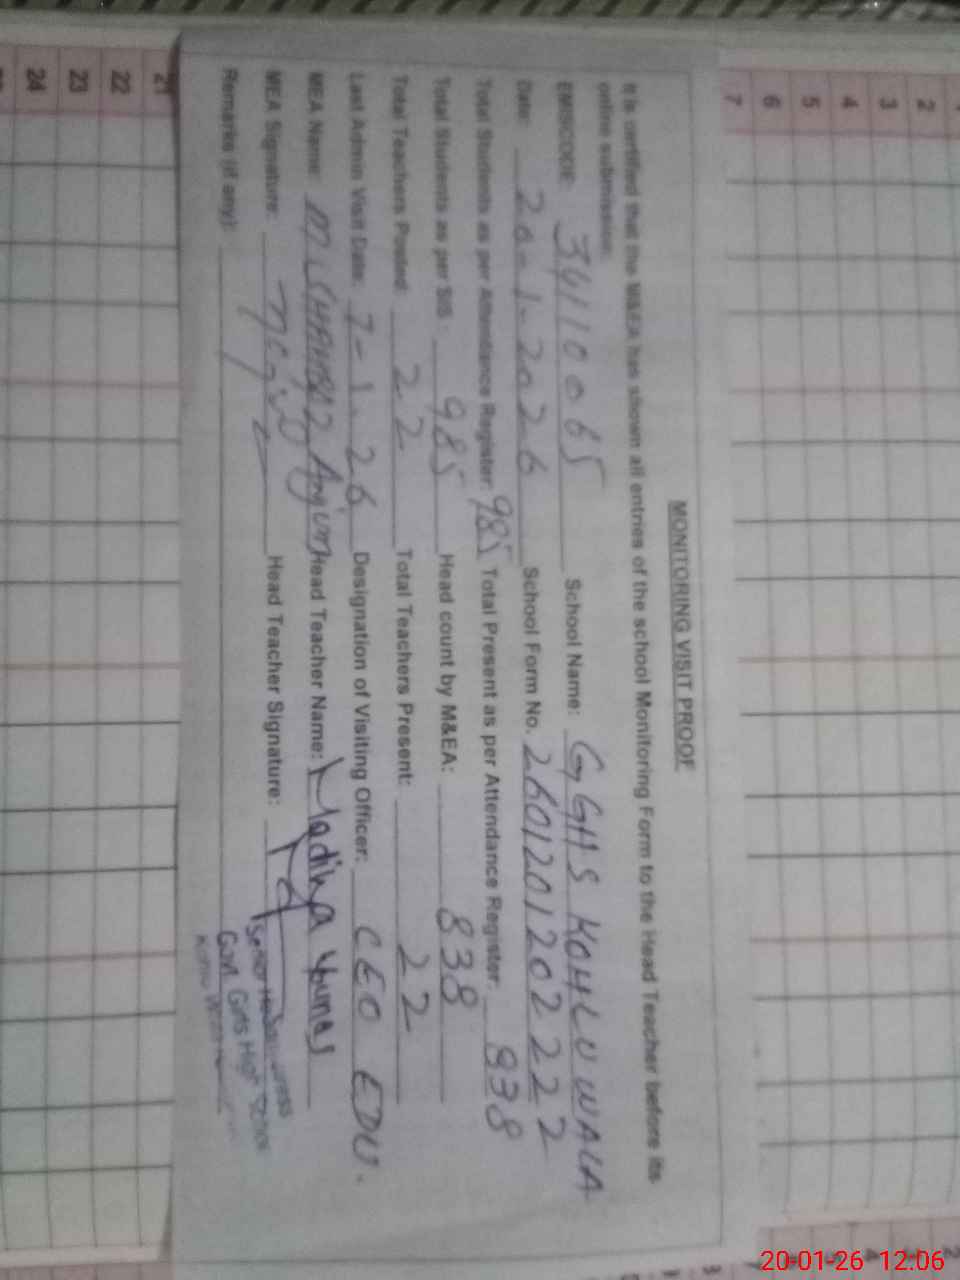 MONITORING VISIT PROOF
It is certified that the M&EA has shown all entries of the school Monitoring Form to the Head Teacher before its
online submission:
EMISCODE: 34110065 School Name: GGHS KOHLUWALA
Date: 20-1-2026 School Form No. 26012012022 2
Total Students as per Attendance Register: 985 Total Present as per Attendance Register: 838
Total Students as per SIS: 985 Head count by M&EA: 838
Total Teachers Posted: 22 Total Teachers Present: 22
Last Admin Visit Date: 7-1-26 Designation of Visiting Officer: CEO EDU.
MEA Name: Head Teacher Name: Hadiya Younas
MEA Signature: Head Teacher Signature:
Remarks (if any):
Govt. Girls High School
24 23 22 21
7 6 5 4 3 2
20-01-26 12:06